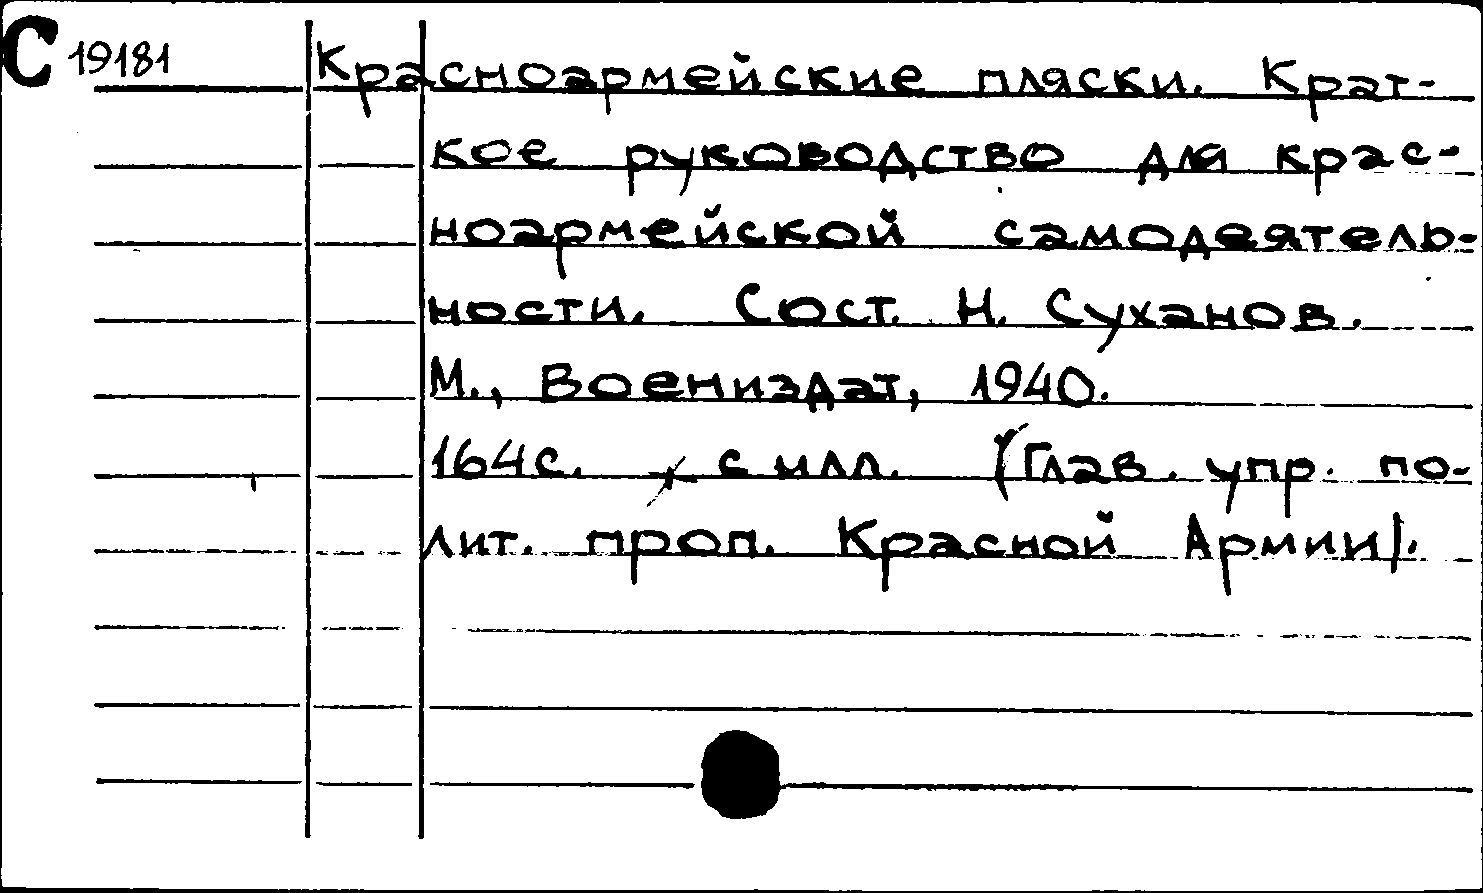 С 19181 Красноармейские пляски. Крат-
кое руководство для крас-
ноармейской самодеятель-
ности. Сост. Н. Суханов.
М., Воениздат, 1940.
164с. с илл. (Глав. упр. по-
лит. проп. Красной Армии).